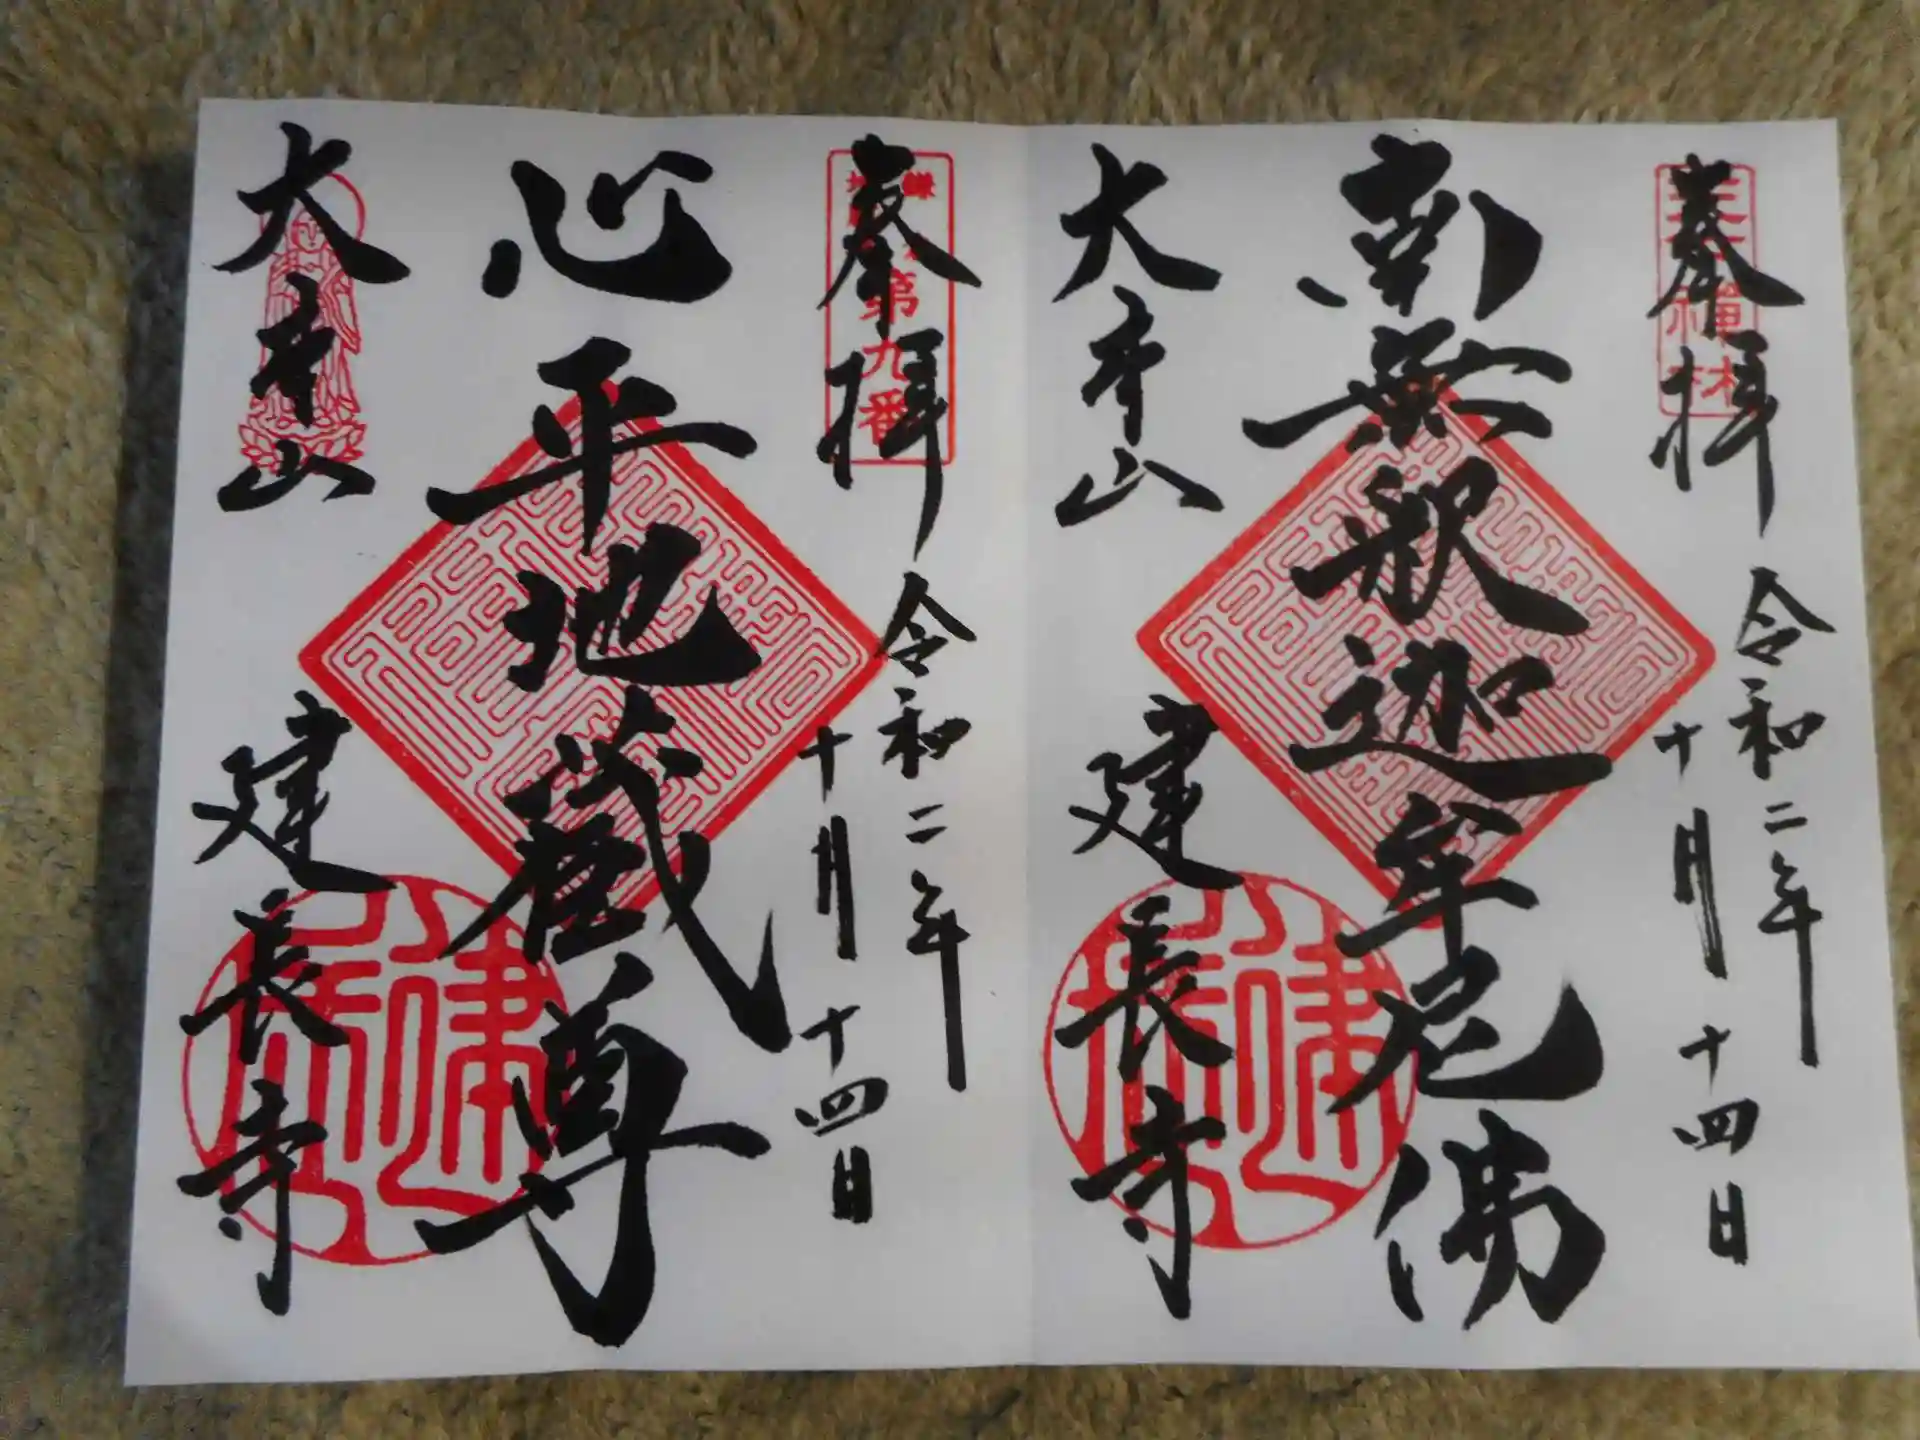 奉拜
令和二年
十月十四日
南無釈迦牟尼佛
大本山
建長寺
奉拝
第九番
令和二年
十月十四日
心平地蔵尊
大本山
建長寺